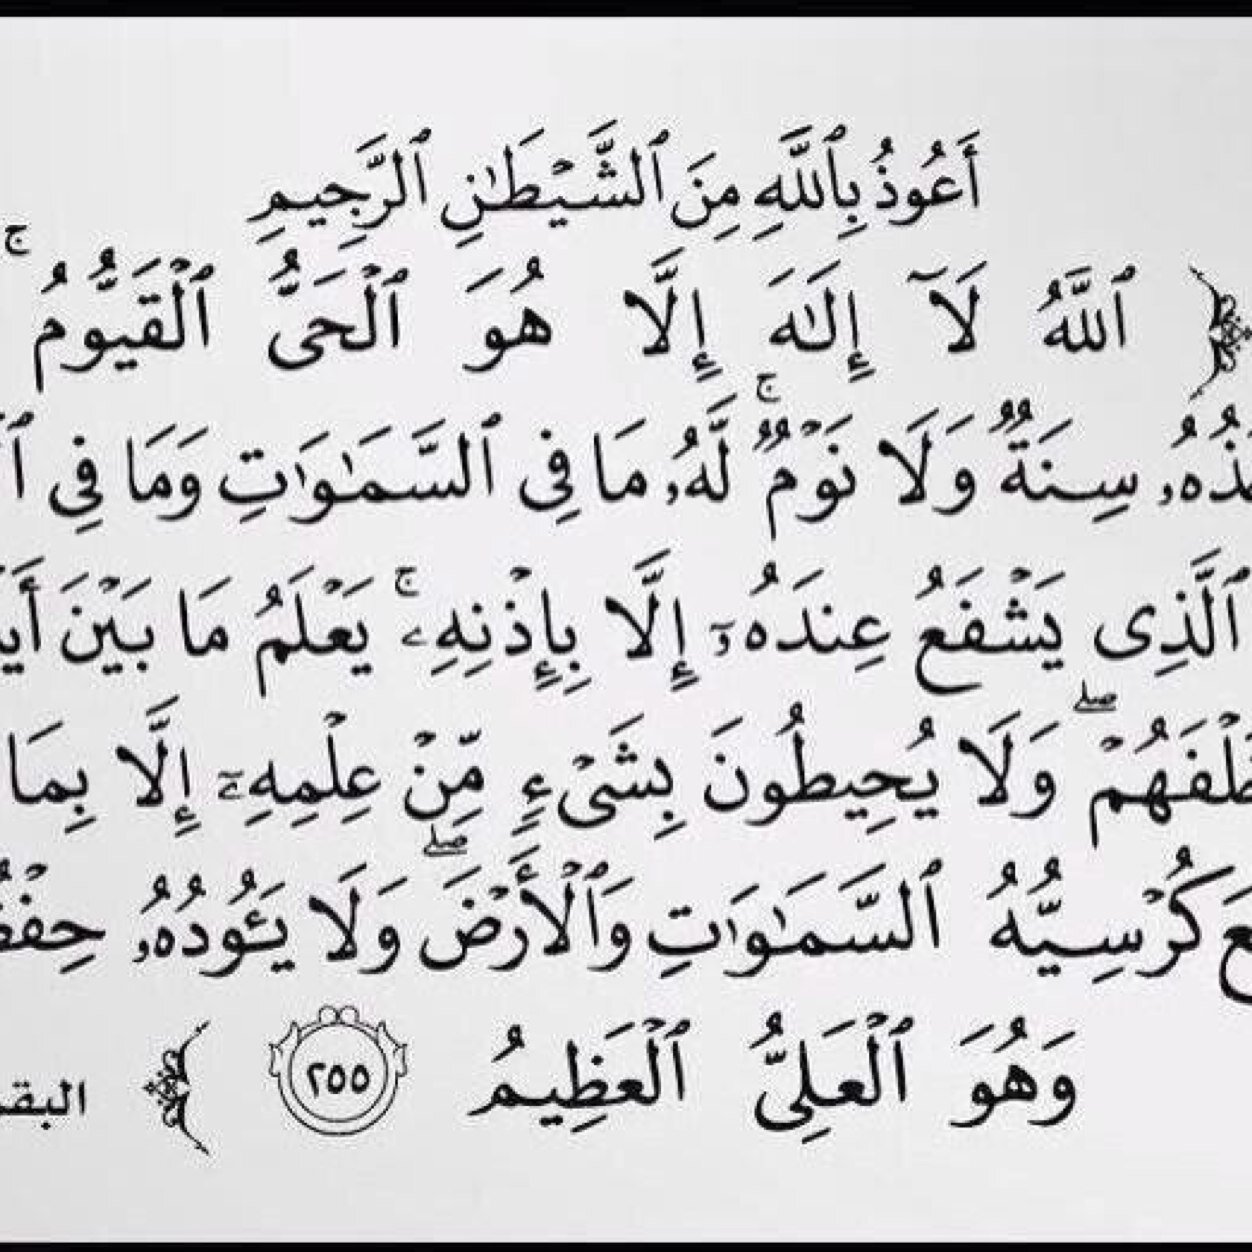 أَعُوذُ بِٱللَّهِ مِنَ ٱلشَّيْطَٰنِ ٱلرَّجِيمِ
ٱللَّهُ لَآ إِلَٰهَ إِلَّا هُوَ ٱلْحَىُّ ٱلْقَيُّومُ ۚ
سِنَةٌ وَلَا نَوْمٌ ۚ لَّهُۥ مَا فِى ٱلسَّمَٰوَٰتِ وَمَا فِى
ٱلَّذِى يَشْفَعُ عِندَهُۥٓ إِلَّا بِإِذْنِهِۦ ۚ يَعْلَمُ مَا بَيْنَ
وَلَا يُحِيطُونَ بِشَىْءٍ مِّنْ عِلْمِهِۦٓ إِلَّا بِمَا
كُرْسِيُّهُ ٱلسَّمَٰوَٰتِ وَٱلْأَرْضَ ۖ وَلَا يَـُٔودُهُۥ
وَهُوَ ٱلْعَلِىُّ ٱلْعَظِيمُ ٢٥٥